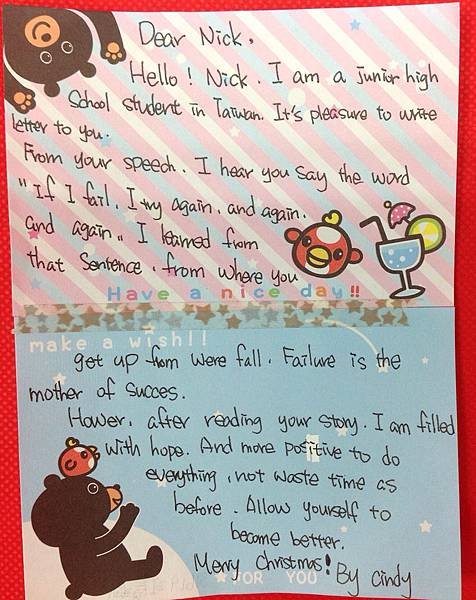 Dear Nick,
Hello! Nick. I am a junior high
School student in Taiwan. It's pleasure to write
letter to you.
From your speech. I hear you say the word
"If I fail, I try again, and again,
and again" I learned from
that Sentence, from where you
Have a nice day!!
make a wish!!
get up from were fall. Failure is the
mother of Succes.
Hower, after reading your story. I am filled
with hope. And more positive to do
everything, not waste time as
before. Allow yourself to
become better.
Merry Christmas! By Cindy
FOR YOU